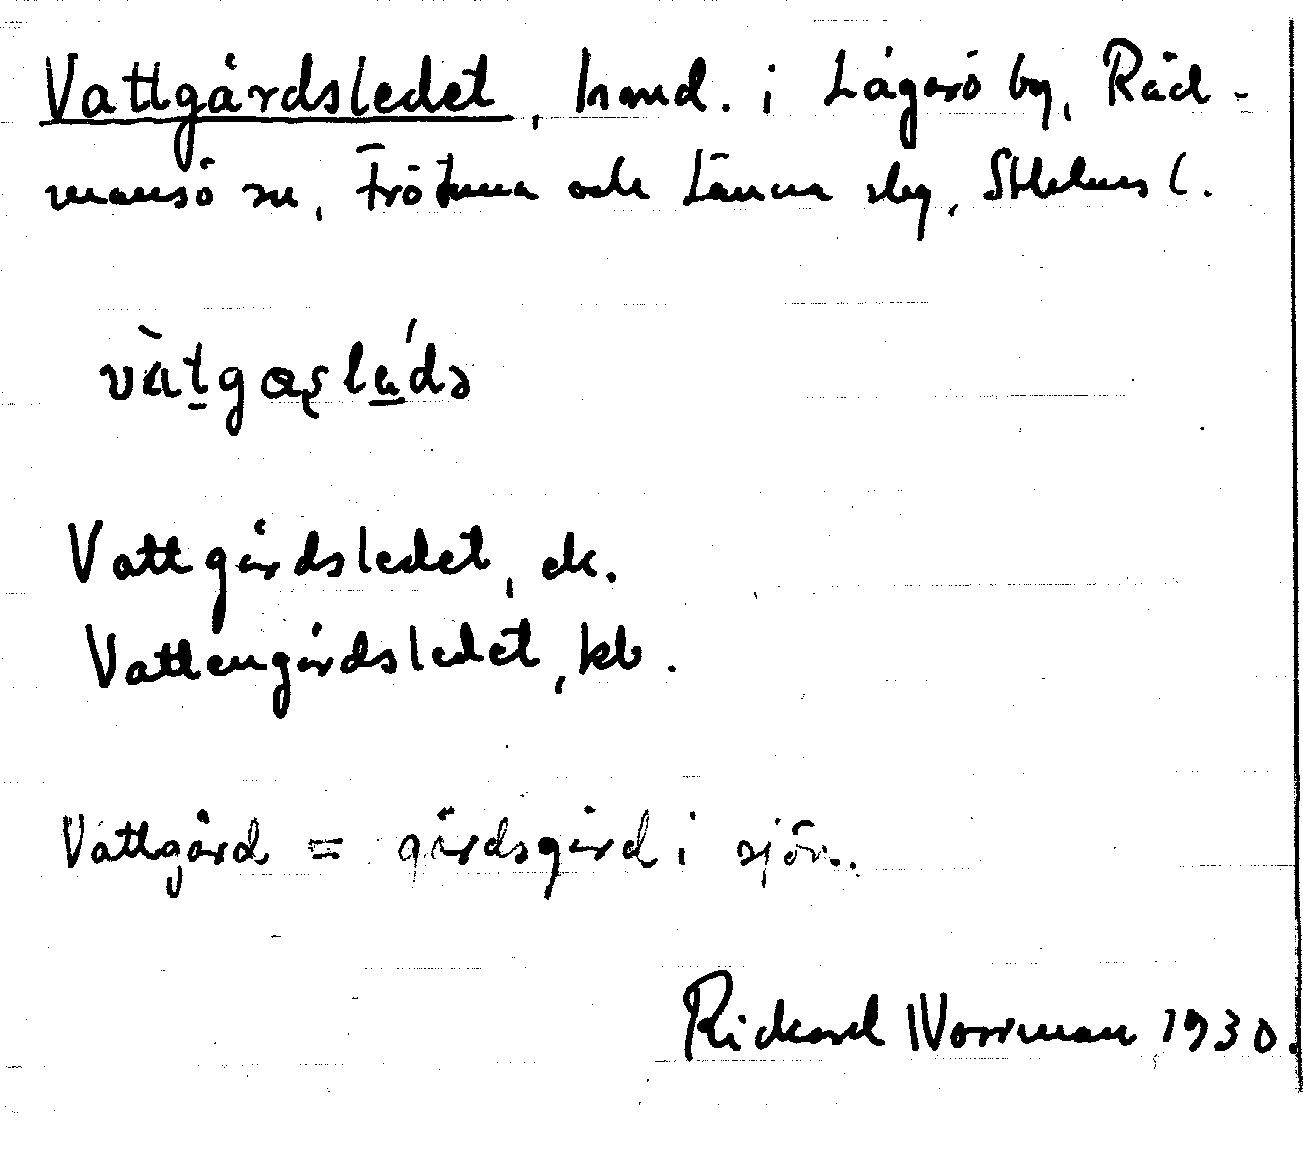 Vattgårdsledet, hmd. i Lågarö by, Råd-
mansö sn, Frötuna och Länna slg, Sthlms l.
vàtgaʂládə
Vattgårdsledet, ek.
Vattengårdsledet, kb.
Vattgård = gärdsgård i sjön.
Rickard Norrman 1930.